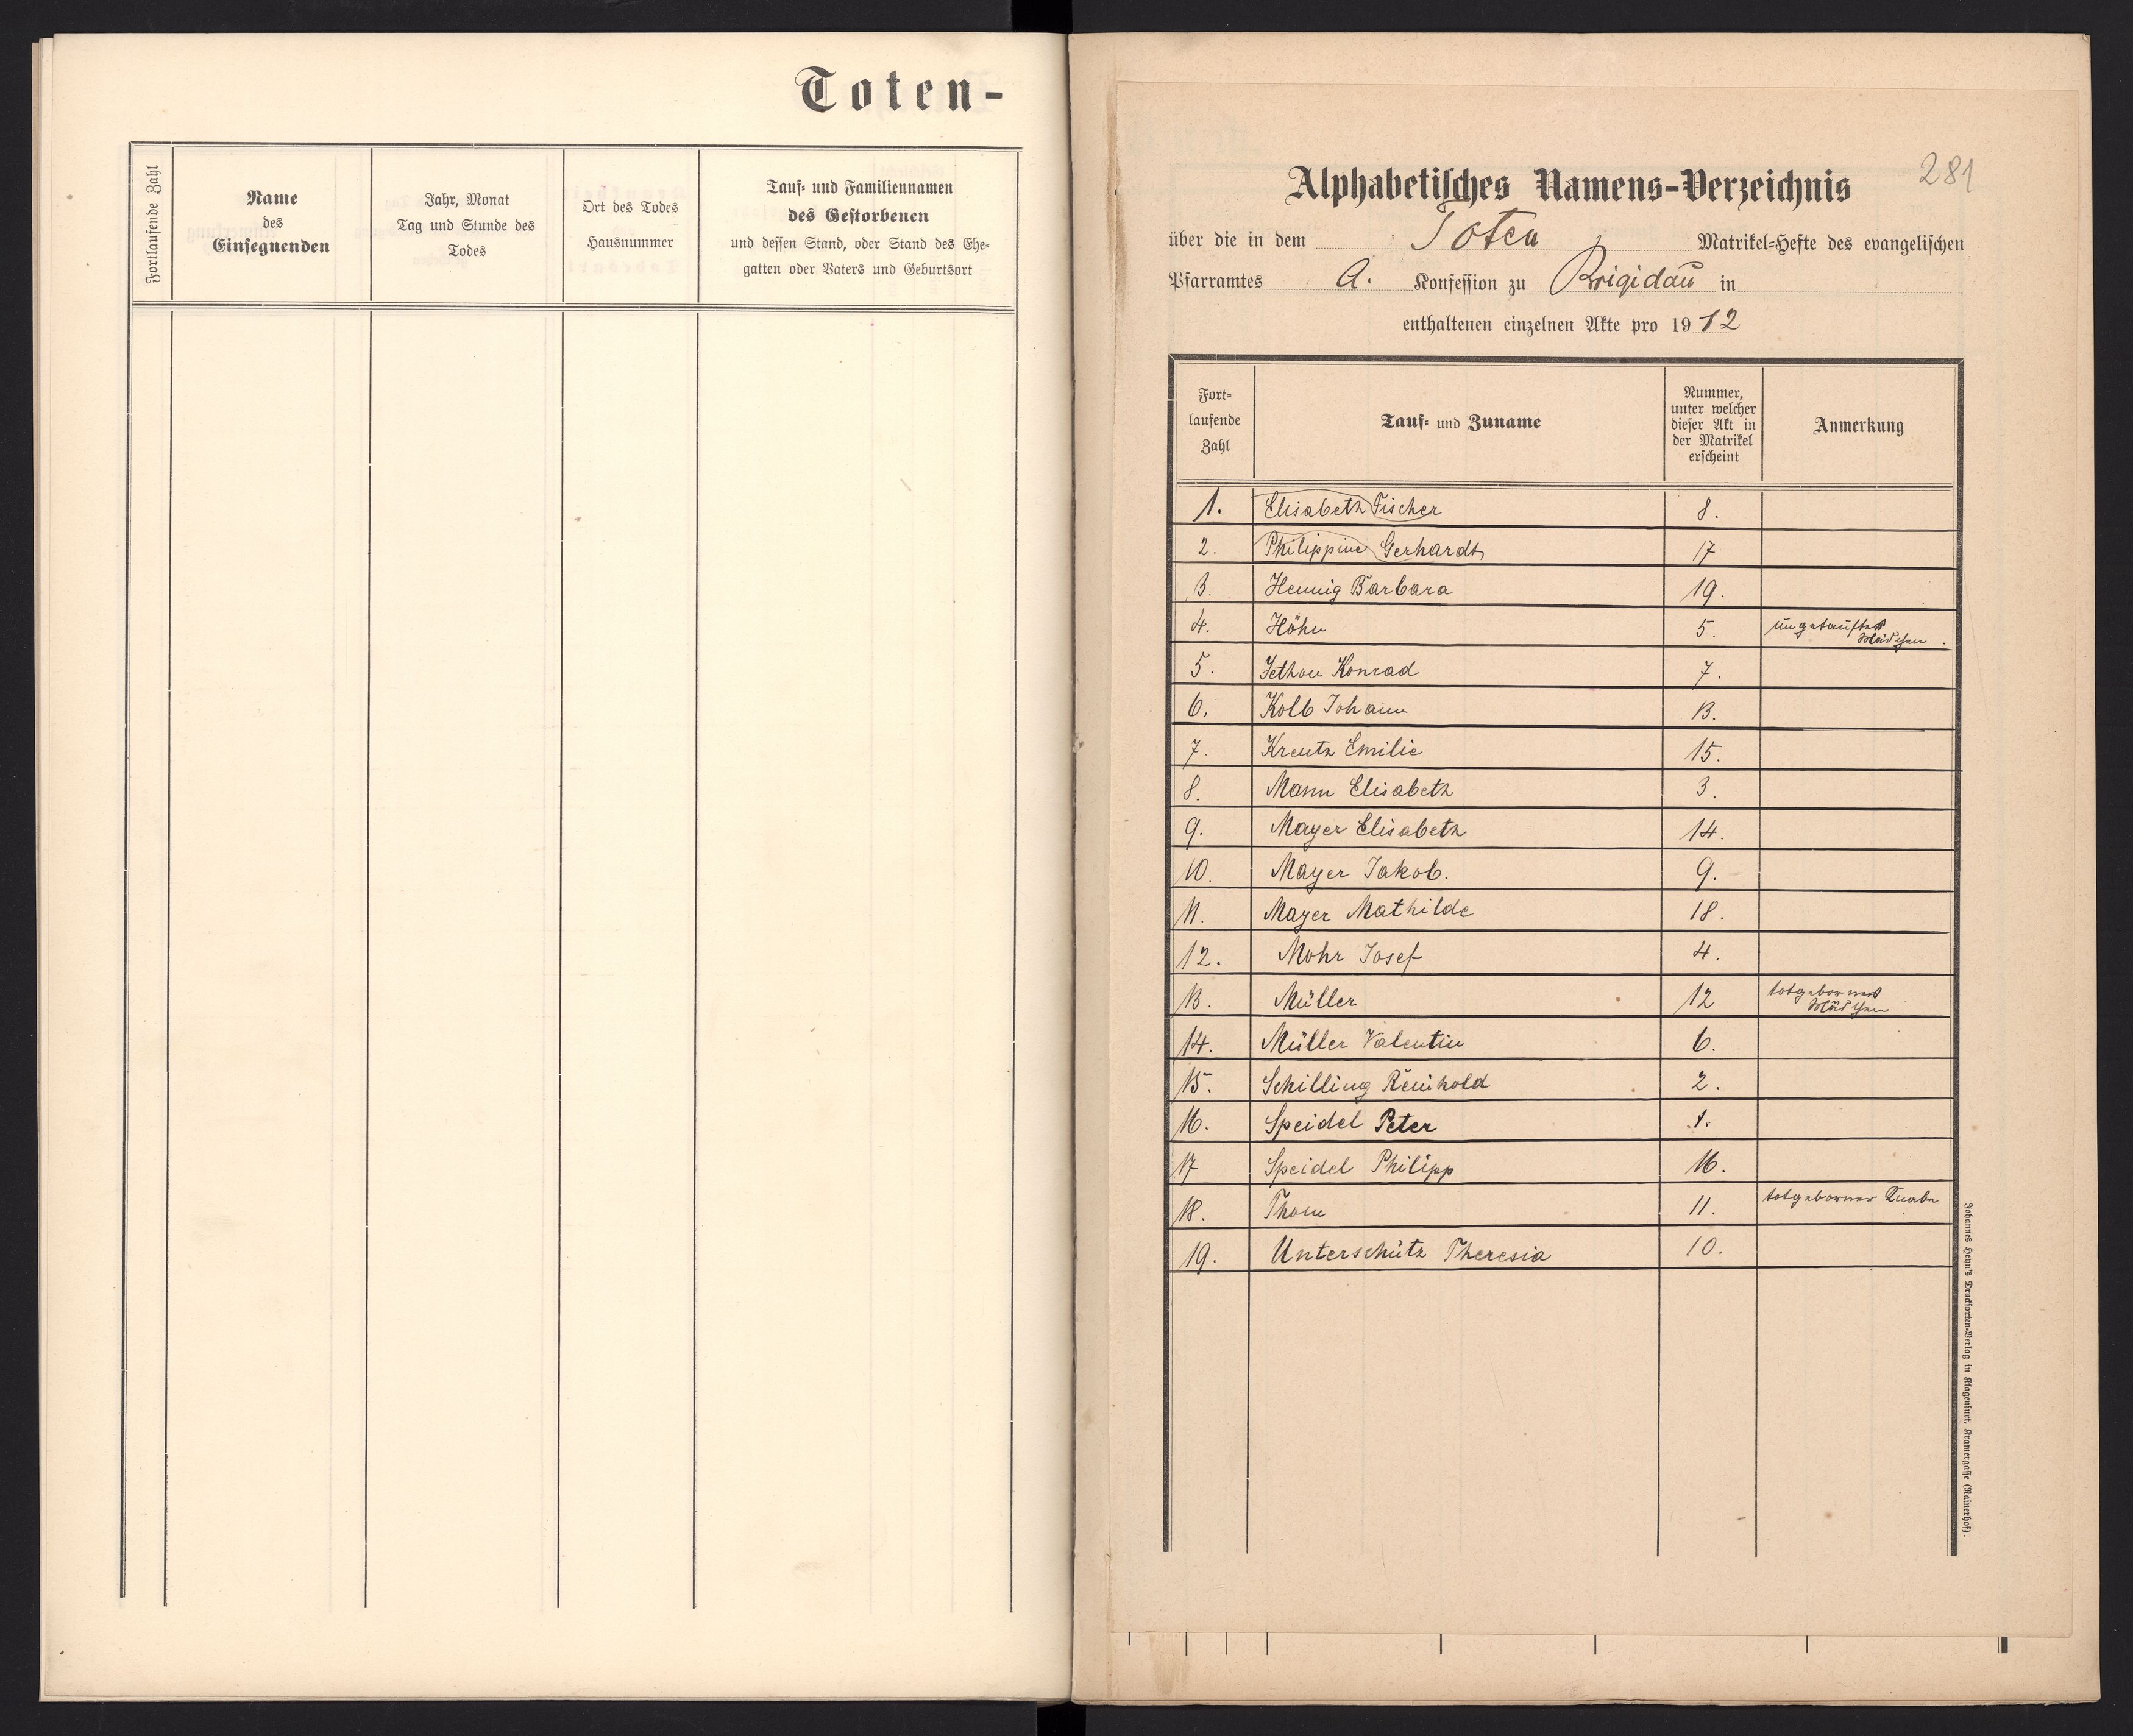 Toten-
Fortlaufende Zahl
Name
des
Einsegnenden
Jahr, Monat
Tag und Stunde des
Todes
Ort des Todes
Hausnummer
Tauf- und Familiennamen
des Gestorbenen
und dessen Stand, oder Stand des Ehe-
gatten oder Vaters und Geburtsort
281
Alphabetisches Namens-Verzeichnis
über die in dem Toten Matrikel-Hefte des evangelischen
Pfarramtes A. Konfession zu Brigidau in
enthaltenen einzelnen Akte pro 1912
Fort-
laufende
Zahl
Tauf- und Zuname
Nummer,
unter welcher
dieser Akt in
der Matrikel
erscheint
Anmerkung
1. Elisabeth Fischer 8.
2. Philippine Gerhardt 17
3. Hennig Barbara 19.
4. Höhn 5. ungetauftes
Mädchen.
5. Jethon Konrad 7.
6. Kolb Johann 13.
7. Kreutz Emilie 15.
8. Mann Elisabeth 3.
9. Mayer Elisabeth 14.
10. Mayer Jakob. 9.
11. Mayer Mathilde 18.
12. Mohr Josef 4.
13. Müller 12 totgebornes
Mädchen
14. Müller Valentin 6.
15. Schilling Reinhold 2.
16. Speidel Peter 1.
17 Speidel Philipp 16.
18. Thom 11. totgeborner Knabe
19. Unterschütz Theresia 10.
Johannes Heyn's Drucksorten-Verlag in Klagenfurt, Kramergasse (Rainerhof).